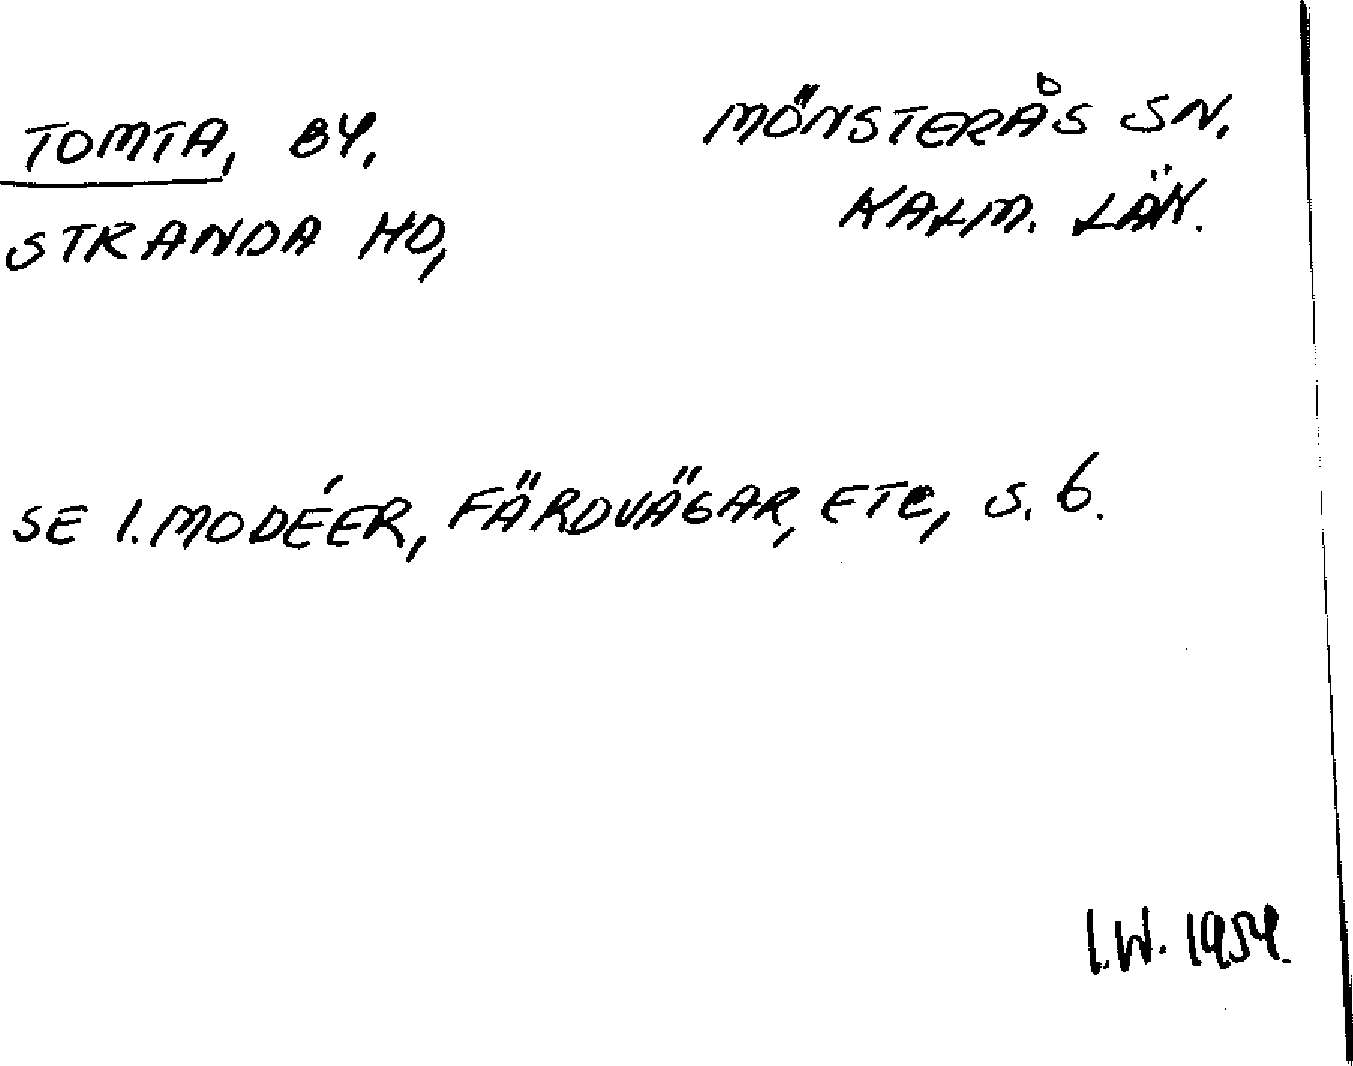 TOMTA, BY. MÖNSTERÅS SN.
STRANDA HD, KALM. LÄN.
SE I. MODÉER, FÄRDVÄGAR, ETC, S. 6.
I.W. 1954.